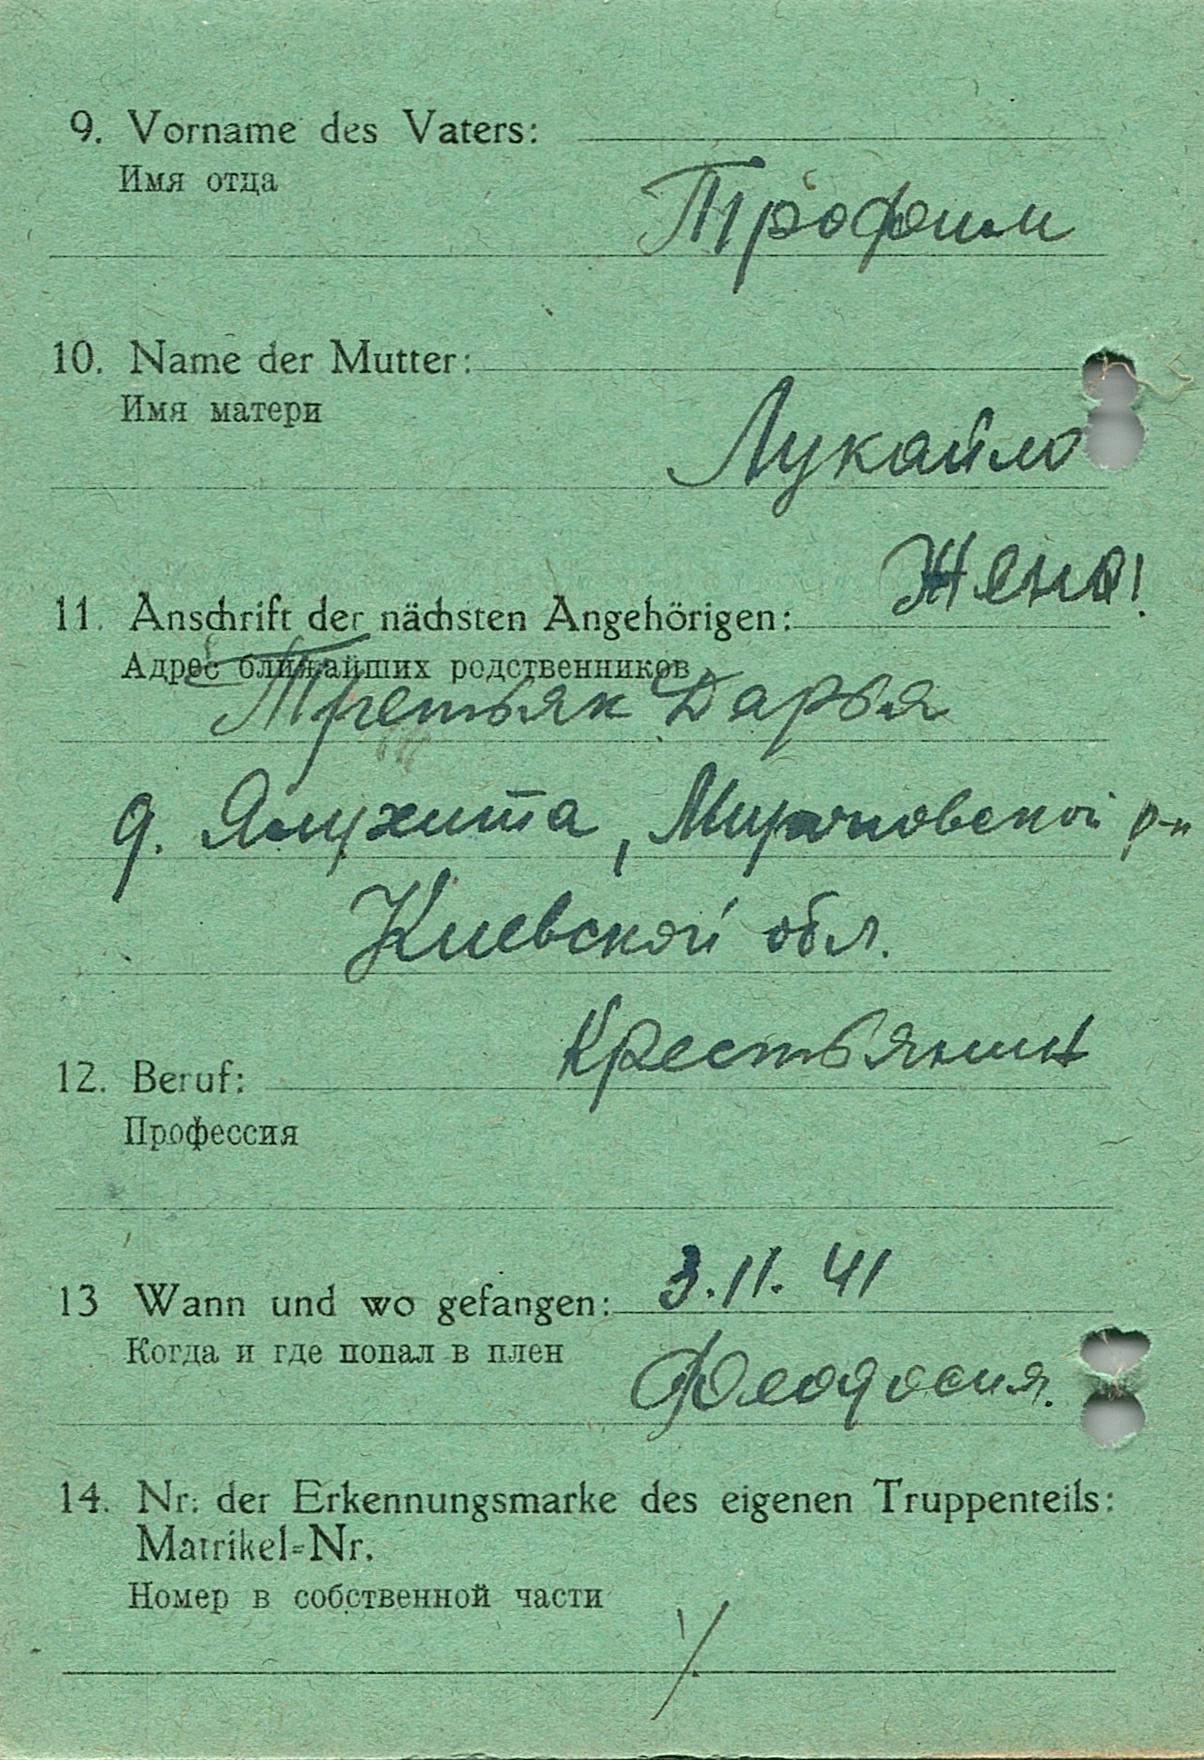 9. Vorname des Vaters:
Имя отца
Трофим
10. Name der Mutter:
Имя матери
Лукайло
Жена!
11. Anschrift der nächsten Angehörigen:
Адрес ближайших родственников
Третьяк Дарья
д. Ямухита, р-н
Киевской обл.
Крестьянин
12. Beruf:
Профессия
3.11.41
13 Wann und wo gefangen:
Когда и где попал в плен
Феодосия.
14. Nr. der Erkennungsmarke des eigenen Truppenteils:
Matrikel=Nr.
Номер в собственной части